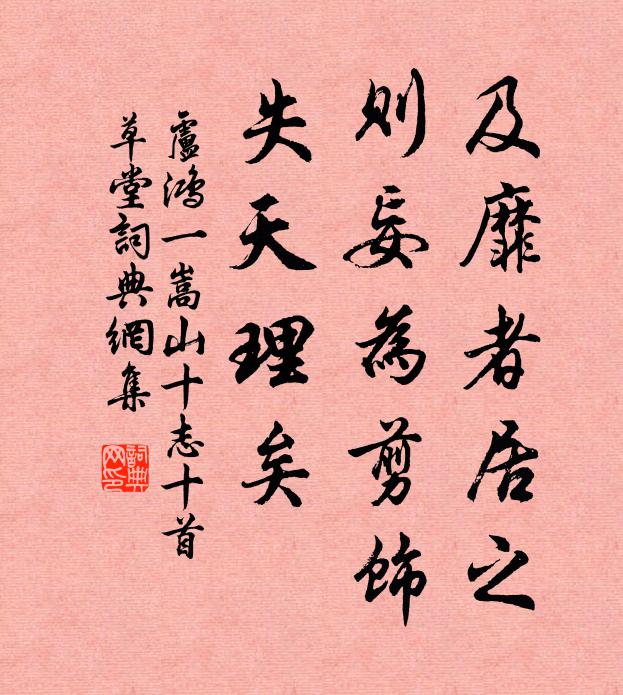 及靡者居之
則妄為剪飾
失天理矣
盧鴻一嵩山十志十首
草堂詞典網集
詞典
网印